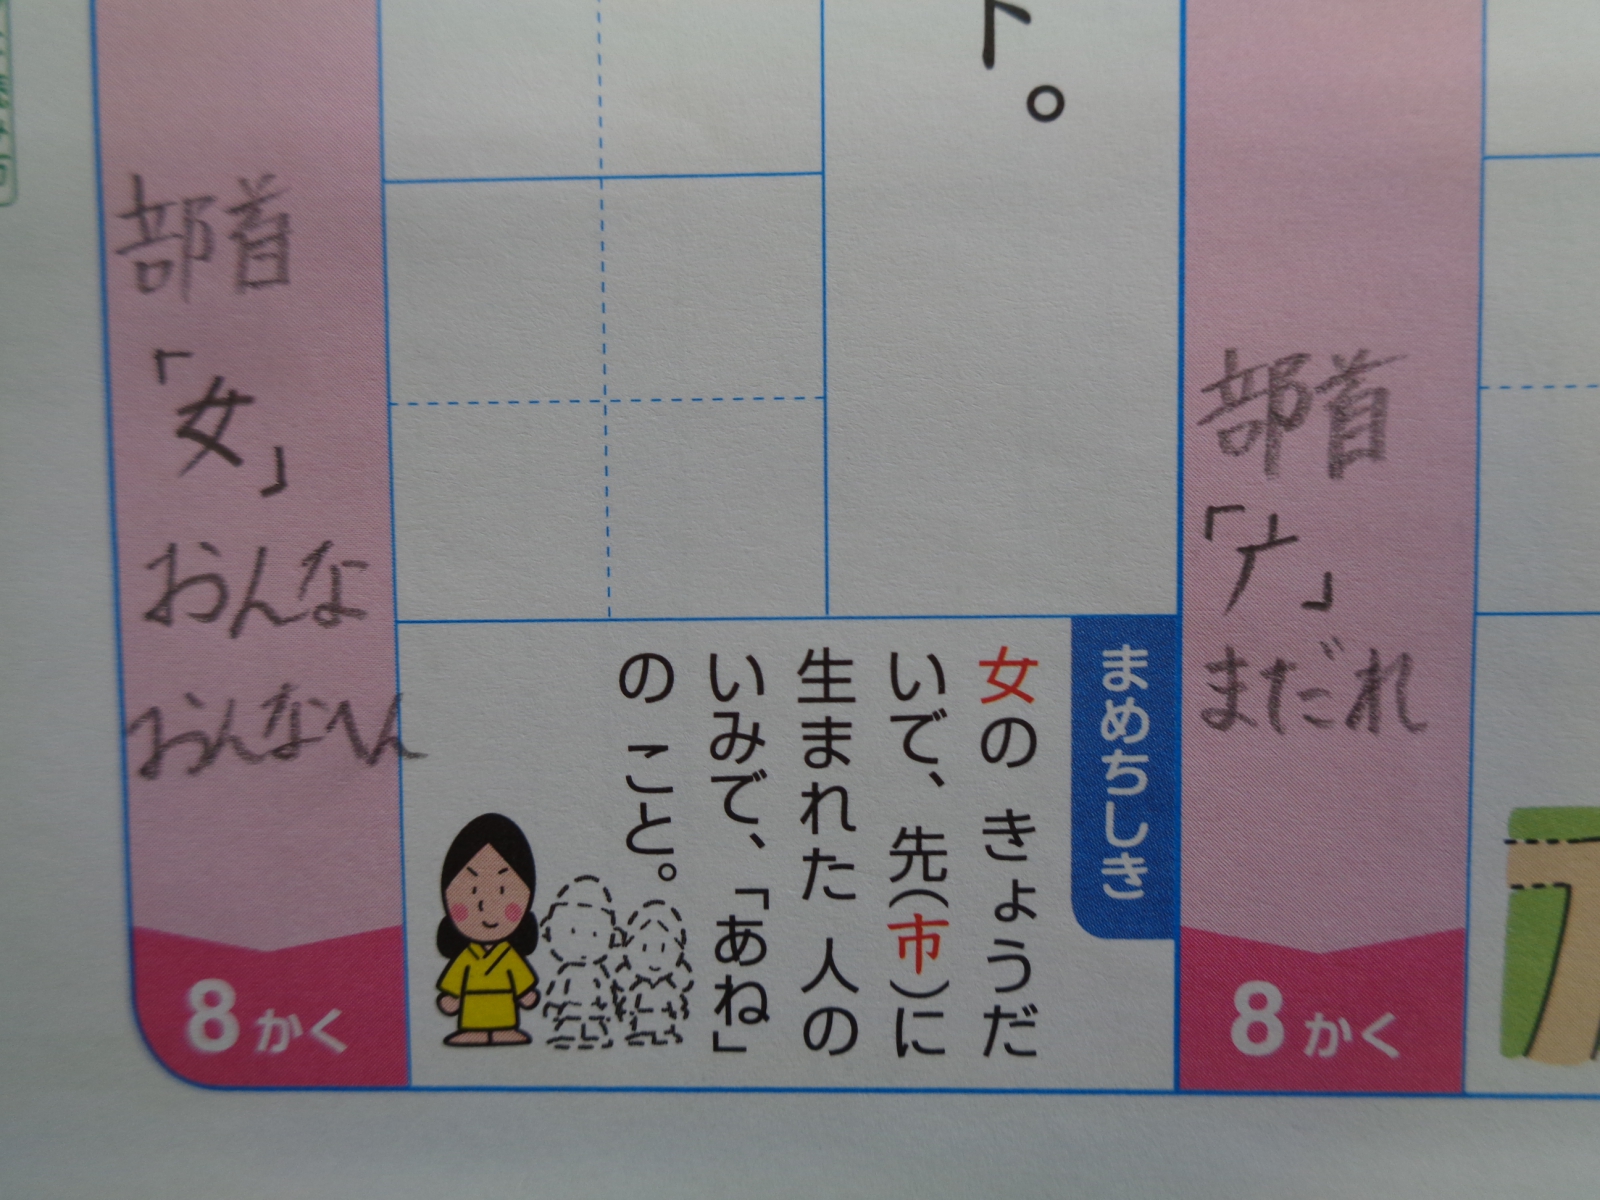 部首
「广」
まだれ
8かく
ト。
まめちしき
女の きょうだ
いで、先(市)に
生まれた 人の
いみで、「あね」
の こと。
部首
「女」
おんな
おんなへん
8かく